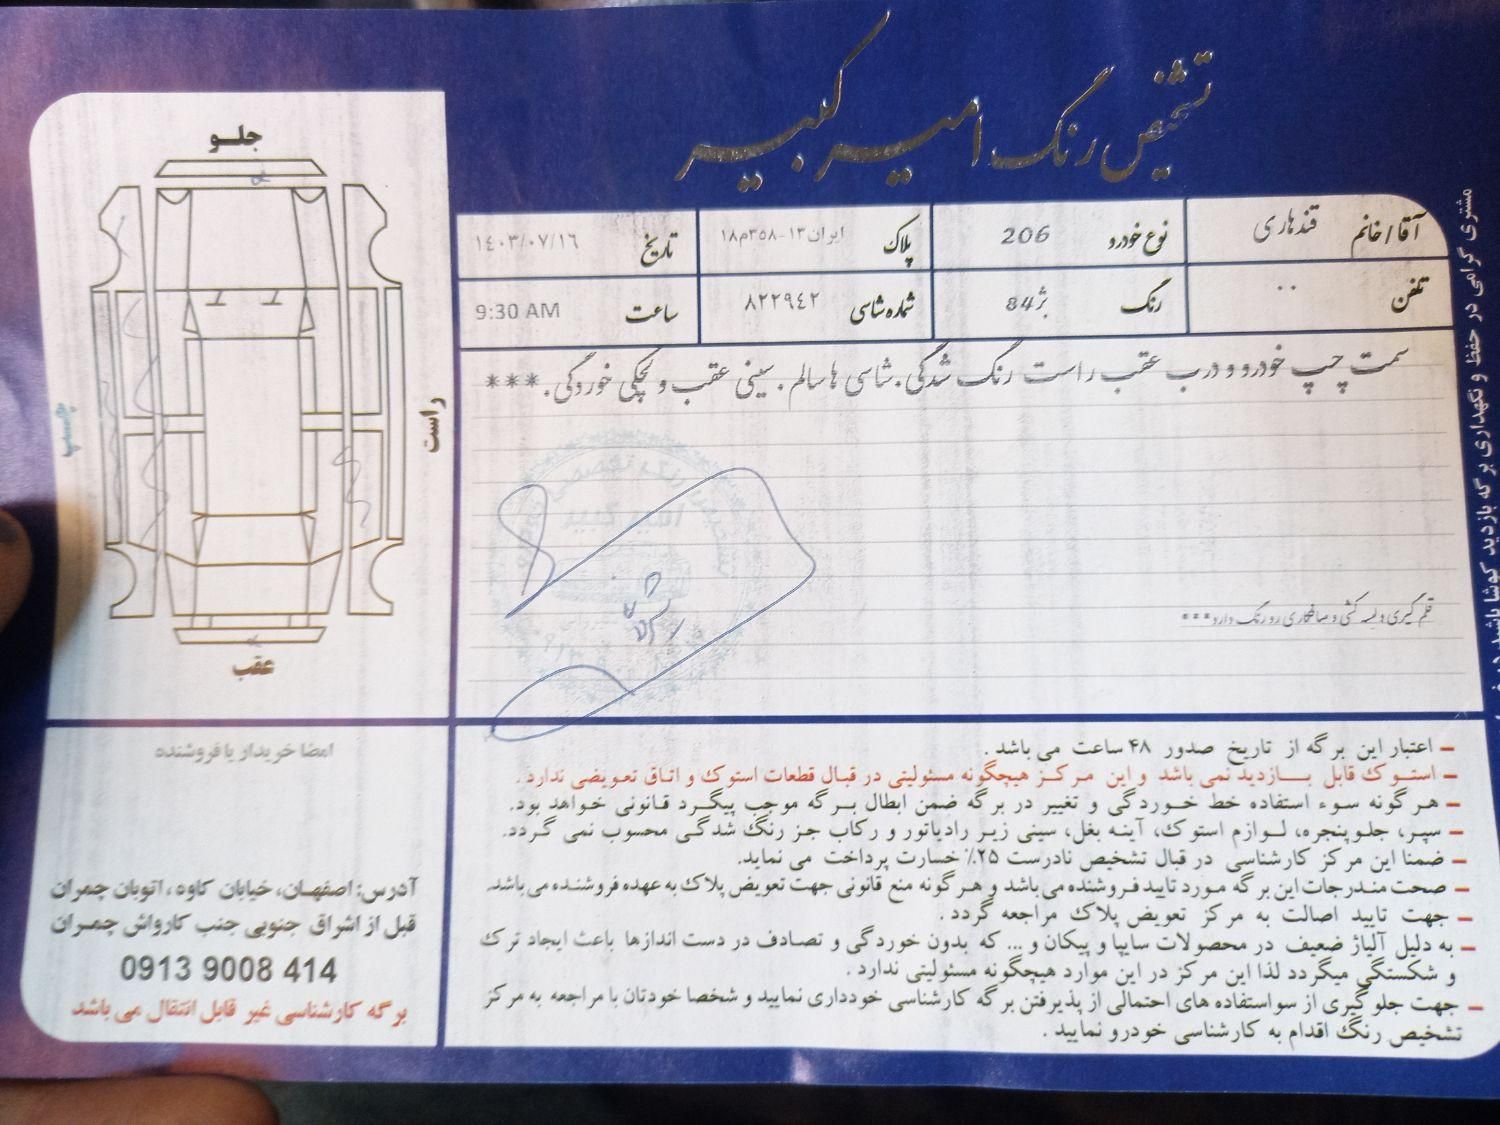 تشخیص رنگ امیرکبیر
آقا/خانم قندهاری نوع خودرو 206 پلاک ایران ۱۳-۳۵۸م۱۸ تاریخ ۱٤۰۳/۰۷/۱٦
تلفن ۰۰ رنگ بژ84 شماره شاسی ۸۲۲۹٤۲ ساعت 9:30 AM
سمت چپ خودرو و درب عقب راست رنگ شدگی. شاسی ها سالم. سینی عقب و لچکی خوردگی. ***
قلم گیری و لیسه کشی و صافکاری رو رنگ دارد***
جلو
راست
چپ
عقب
امیر کبیر
امضا خریدار یا فروشنده
آدرس: اصفهان، خیابان کاوه، اتوبان چمران
قبل از اشراق جنوبی جنب کارواش چمران
0913 9008 414
برگه کارشناسی غیر قابل انتقال می باشد
– اعتبار این برگه از تاریخ صدور ۴۸ ساعت می باشد.
– استوک قابل بازدید نمی باشد و این مرکز هیچگونه مسئولیتی در قبال قطعات استوک و اتاق تعویضی ندارد.
– هرگونه سوء استفاده خط خوردگی و تغییر در برگه ضمن ابطال برگه موجب پیگرد قانونی خواهد بود.
– سپر، جلوپنجره، لوازم استوک، آینه بغل، سینی زیر رادیاتور و رکاب جز رنگ شدگی محسوب نمی گردد.
– ضمنا این مرکز کارشناسی در قبال تشخیص نادرست ۲۵٪ خسارت پرداخت می نماید.
– صحت مندرجات این برگه مورد تایید فروشنده می باشد و هرگونه منع قانونی جهت تعویض پلاک به عهده فروشنده می باشد.
– جهت تایید اصالت به مرکز تعویض پلاک مراجعه گردد.
– به دلیل آلیاژ ضعیف در محصولات سایپا و پیکان و ... که بدون خوردگی و تصادف در دست اندازها باعث ایجاد ترک
و شکستگی میگردد لذا این مرکز در این موارد هیچگونه مسئولیتی ندارد.
– جهت جلوگیری از سواستفاده های احتمالی از پذیرفتن برگه کارشناسی خودداری نمایید و شخصا خودتان با مراجعه به مرکز
تشخیص رنگ اقدام به کارشناسی خودرو نمایید.
مشتری گرامی در حفظ و نگهداری برگه بازدید کوشا باشید